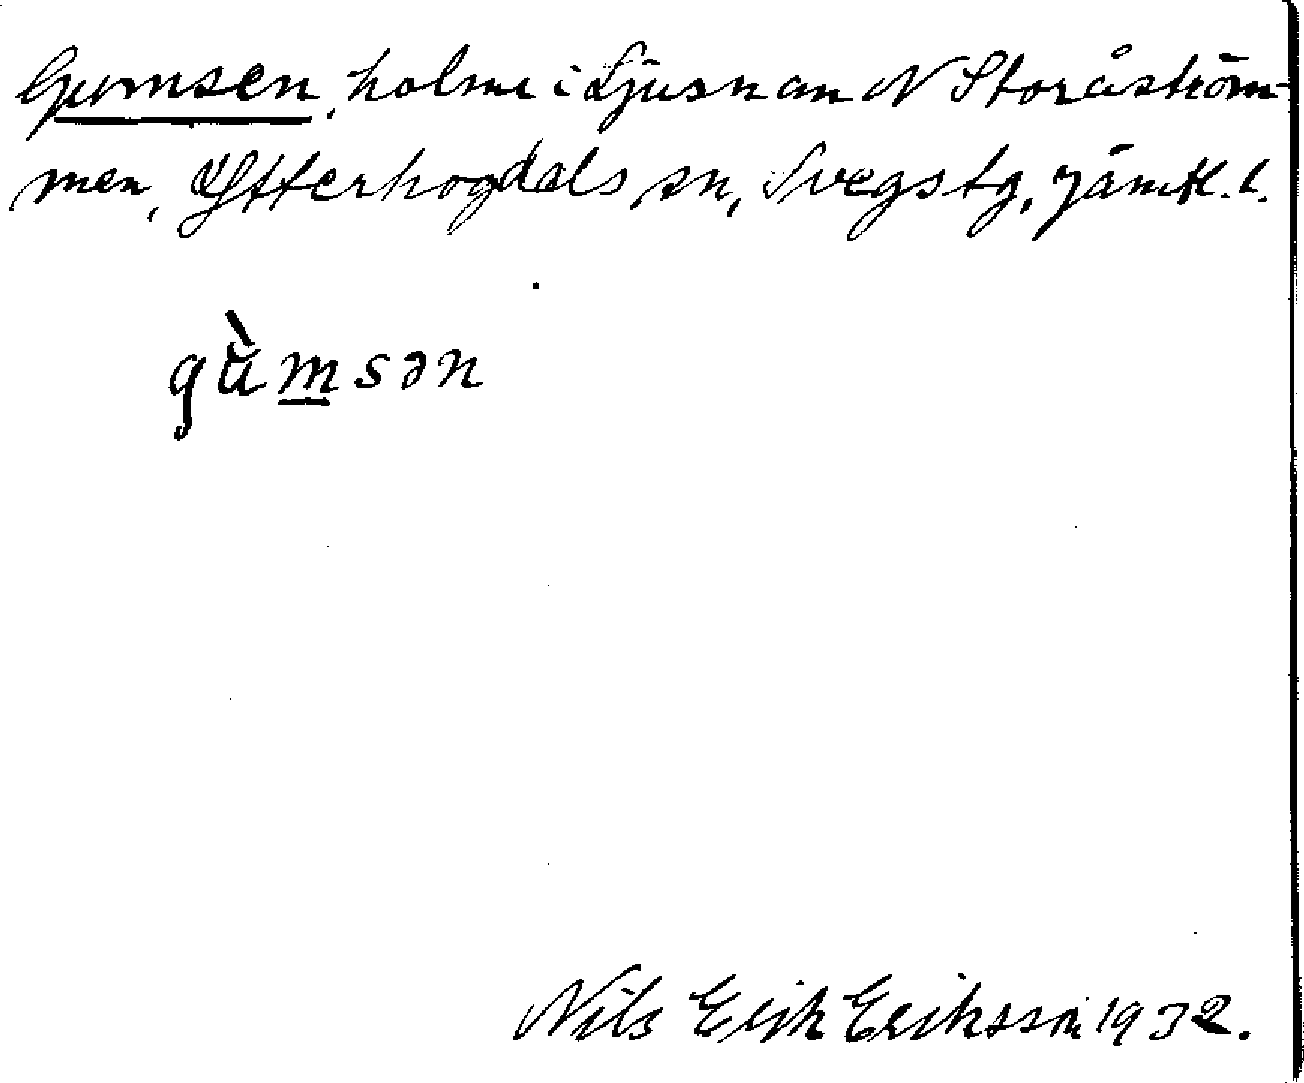 Gumsen, holme i Ljusnan N Storåström-
men, Ytterhogdals sn, Svegs tg, Jämtl. l.
gùmsən
Nils Erik Eriksson 1932.